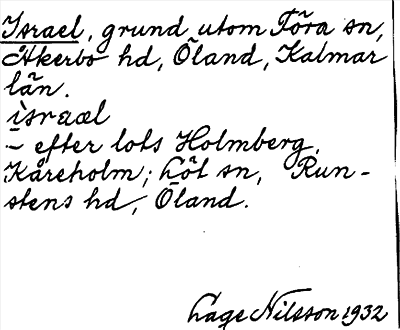 Israel, grund utom Föra sn,
Åkerbo hd, Öland, Kalmar
län.
israel
– efter lots Holmberg,
Kåreholm; Löt sn, Run-
stens hd, Öland.
Lage Nilsson 1932